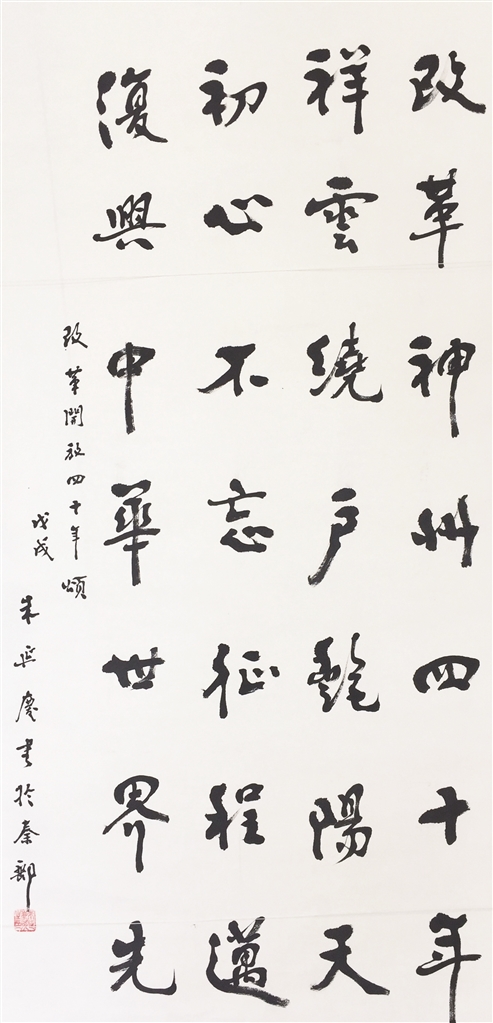 改革神州四十年
祥雲繞戶艷陽天
初心不忘征程邁
復興中華世界先
改革開放四十年頌
戊戌
朱延慶書於秦郵